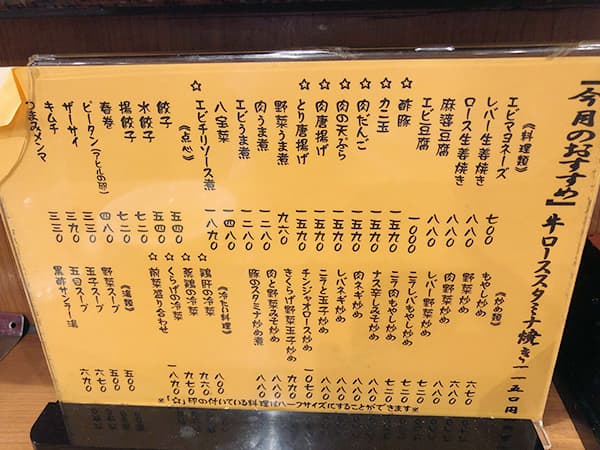 【今月のおすすめ】牛ローススタミナ焼き 一一五〇円
《料理類》
エビマヨネーズ 七〇〇
レバー生姜焼き 八八〇
ロース生姜焼き 八八〇
麻婆豆腐 八八〇
エビ豆腐 一〇〇〇
☆酢豚 一五九〇
☆カニ玉 一五九〇
☆肉だんご 一五九〇
☆肉の天ぷら 一五九〇
☆肉唐揚げ 一五九〇
☆とり唐揚げ 一五九〇
野菜うま煮 九六〇
肉うま煮 一二八〇
エビうま煮 一二八〇
八宝菜 一四八〇
エビチリソース煮 一八九〇
《点心》
餃子 五四〇
水餃子 五四〇
揚餃子 七二〇
春巻 七二〇
ピータン(アヒルの卵) 四八〇
ザーサイ 三三〇
キムチ 三九〇
つまみメンマ 三三〇
《炒め類》
もやし炒め 六七〇
野菜炒め 七六〇
肉野菜炒め 八八〇
レバー野菜炒め 七二〇
ニラレバもやし炒め 七二〇
ニラ肉もやし炒め 七二〇
ナス辛しみそ炒め 八八〇
肉ネギ炒め 八八〇
レバネギ炒め 八八〇
ニラと玉子炒め 八八〇
チンジャオロース炒め 一〇七〇
きくらげ野菜玉子炒め 九七〇
肉と野菜みそ炒め 八八〇
豚のスタミナ炒め煮 八八〇
《冷たい料理》
☆鶏肝の冷菜 八〇〇
☆蒸鶏の冷菜 九六〇
☆くらげの冷菜
☆前菜盛り合わせ 一八九〇
《湯類》
野菜スープ 五〇〇
玉子スープ 五〇〇
五目スープ 六七〇
黒酢サンラー湯 六九〇
※「☆」印の付いている料理はハーフサイズにすることができます※